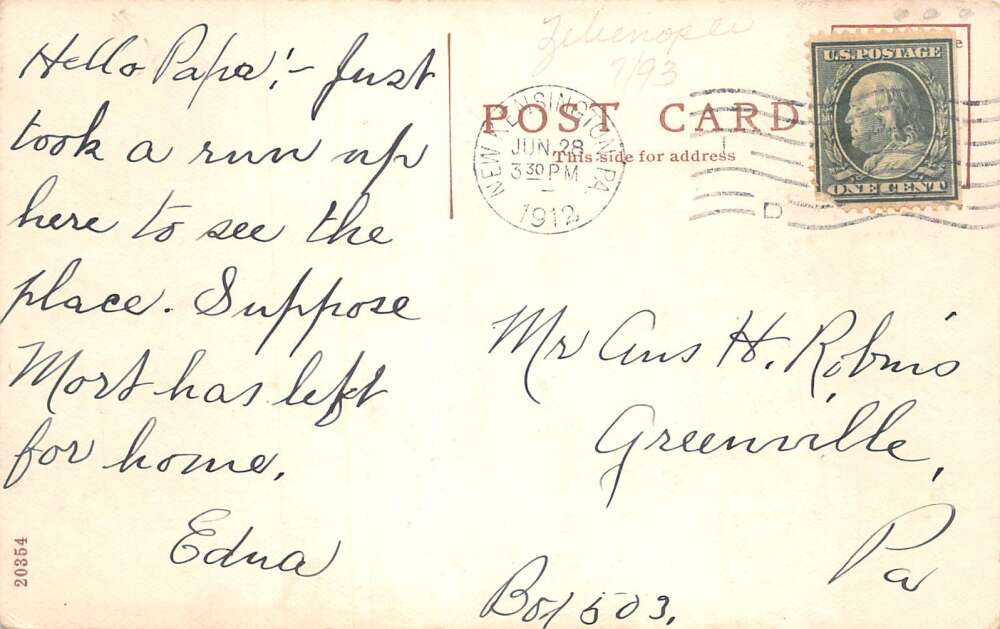 Hello Papa! - Just
took a run up
here to see the
place. Suppose
Mort has left
for home.
Edna
20354
7/93
POST CARD
This side for address
NEW KENSINGTON, PA
JUN 28
3 30 PM
1912
D
U.S. POSTAGE
ONE CENT
Mr H. Robins
Greenville,
Pa
Box 503.